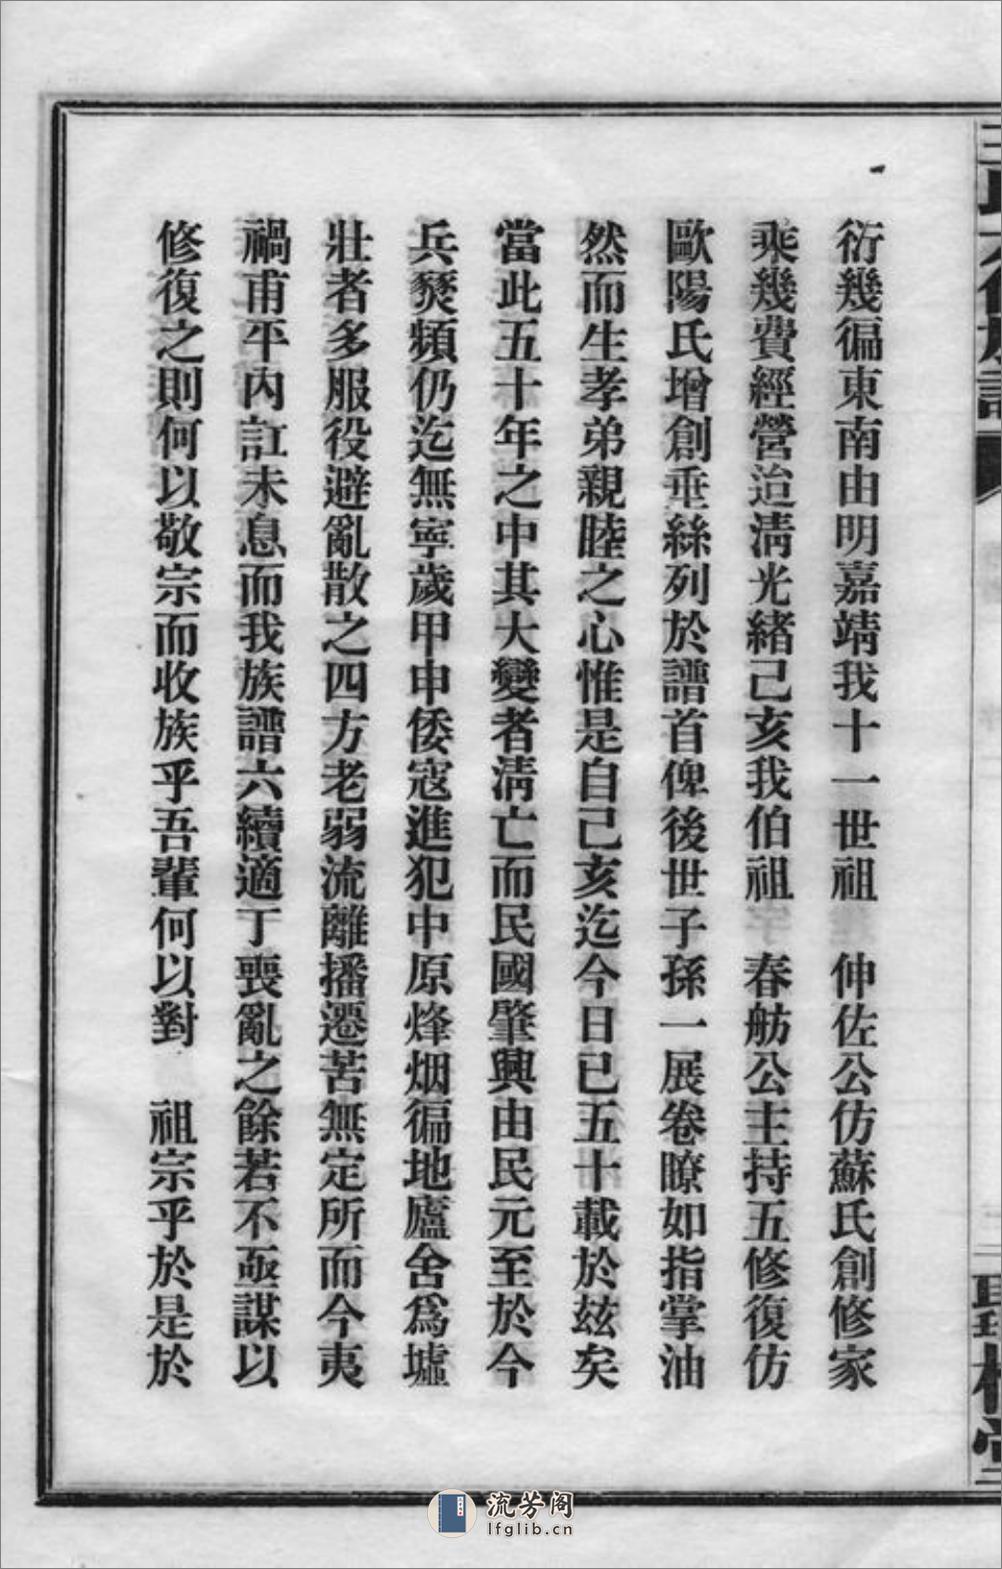 衍幾徧東南由明嘉靖我十一世祖　仲佐公仿蘇氏創修家
乘幾費經營迨淸光緒己亥我伯祖　春舫公主持五修復仿
歐陽氏增創垂絲列於譜首俾後世子孫一展卷瞭如指掌油
然而生孝弟親睦之心惟是自己亥迄今日已五十載於玆矣
當此五十年之中其大變者淸亡而民國肇興由民元至於今
兵燹頻仍迄無寧歲甲申倭寇進犯中原烽烟徧地廬舍爲墟
壯者多服役避亂散之四方老弱流離播遷苦無定所而今夷
禍甫平內訌未息而我族譜六續適丁喪亂之餘若不亟謀以
修復之則何以敬宗而收族乎吾輩何以對　祖宗乎於是於
流芳阁
lfglib.cn